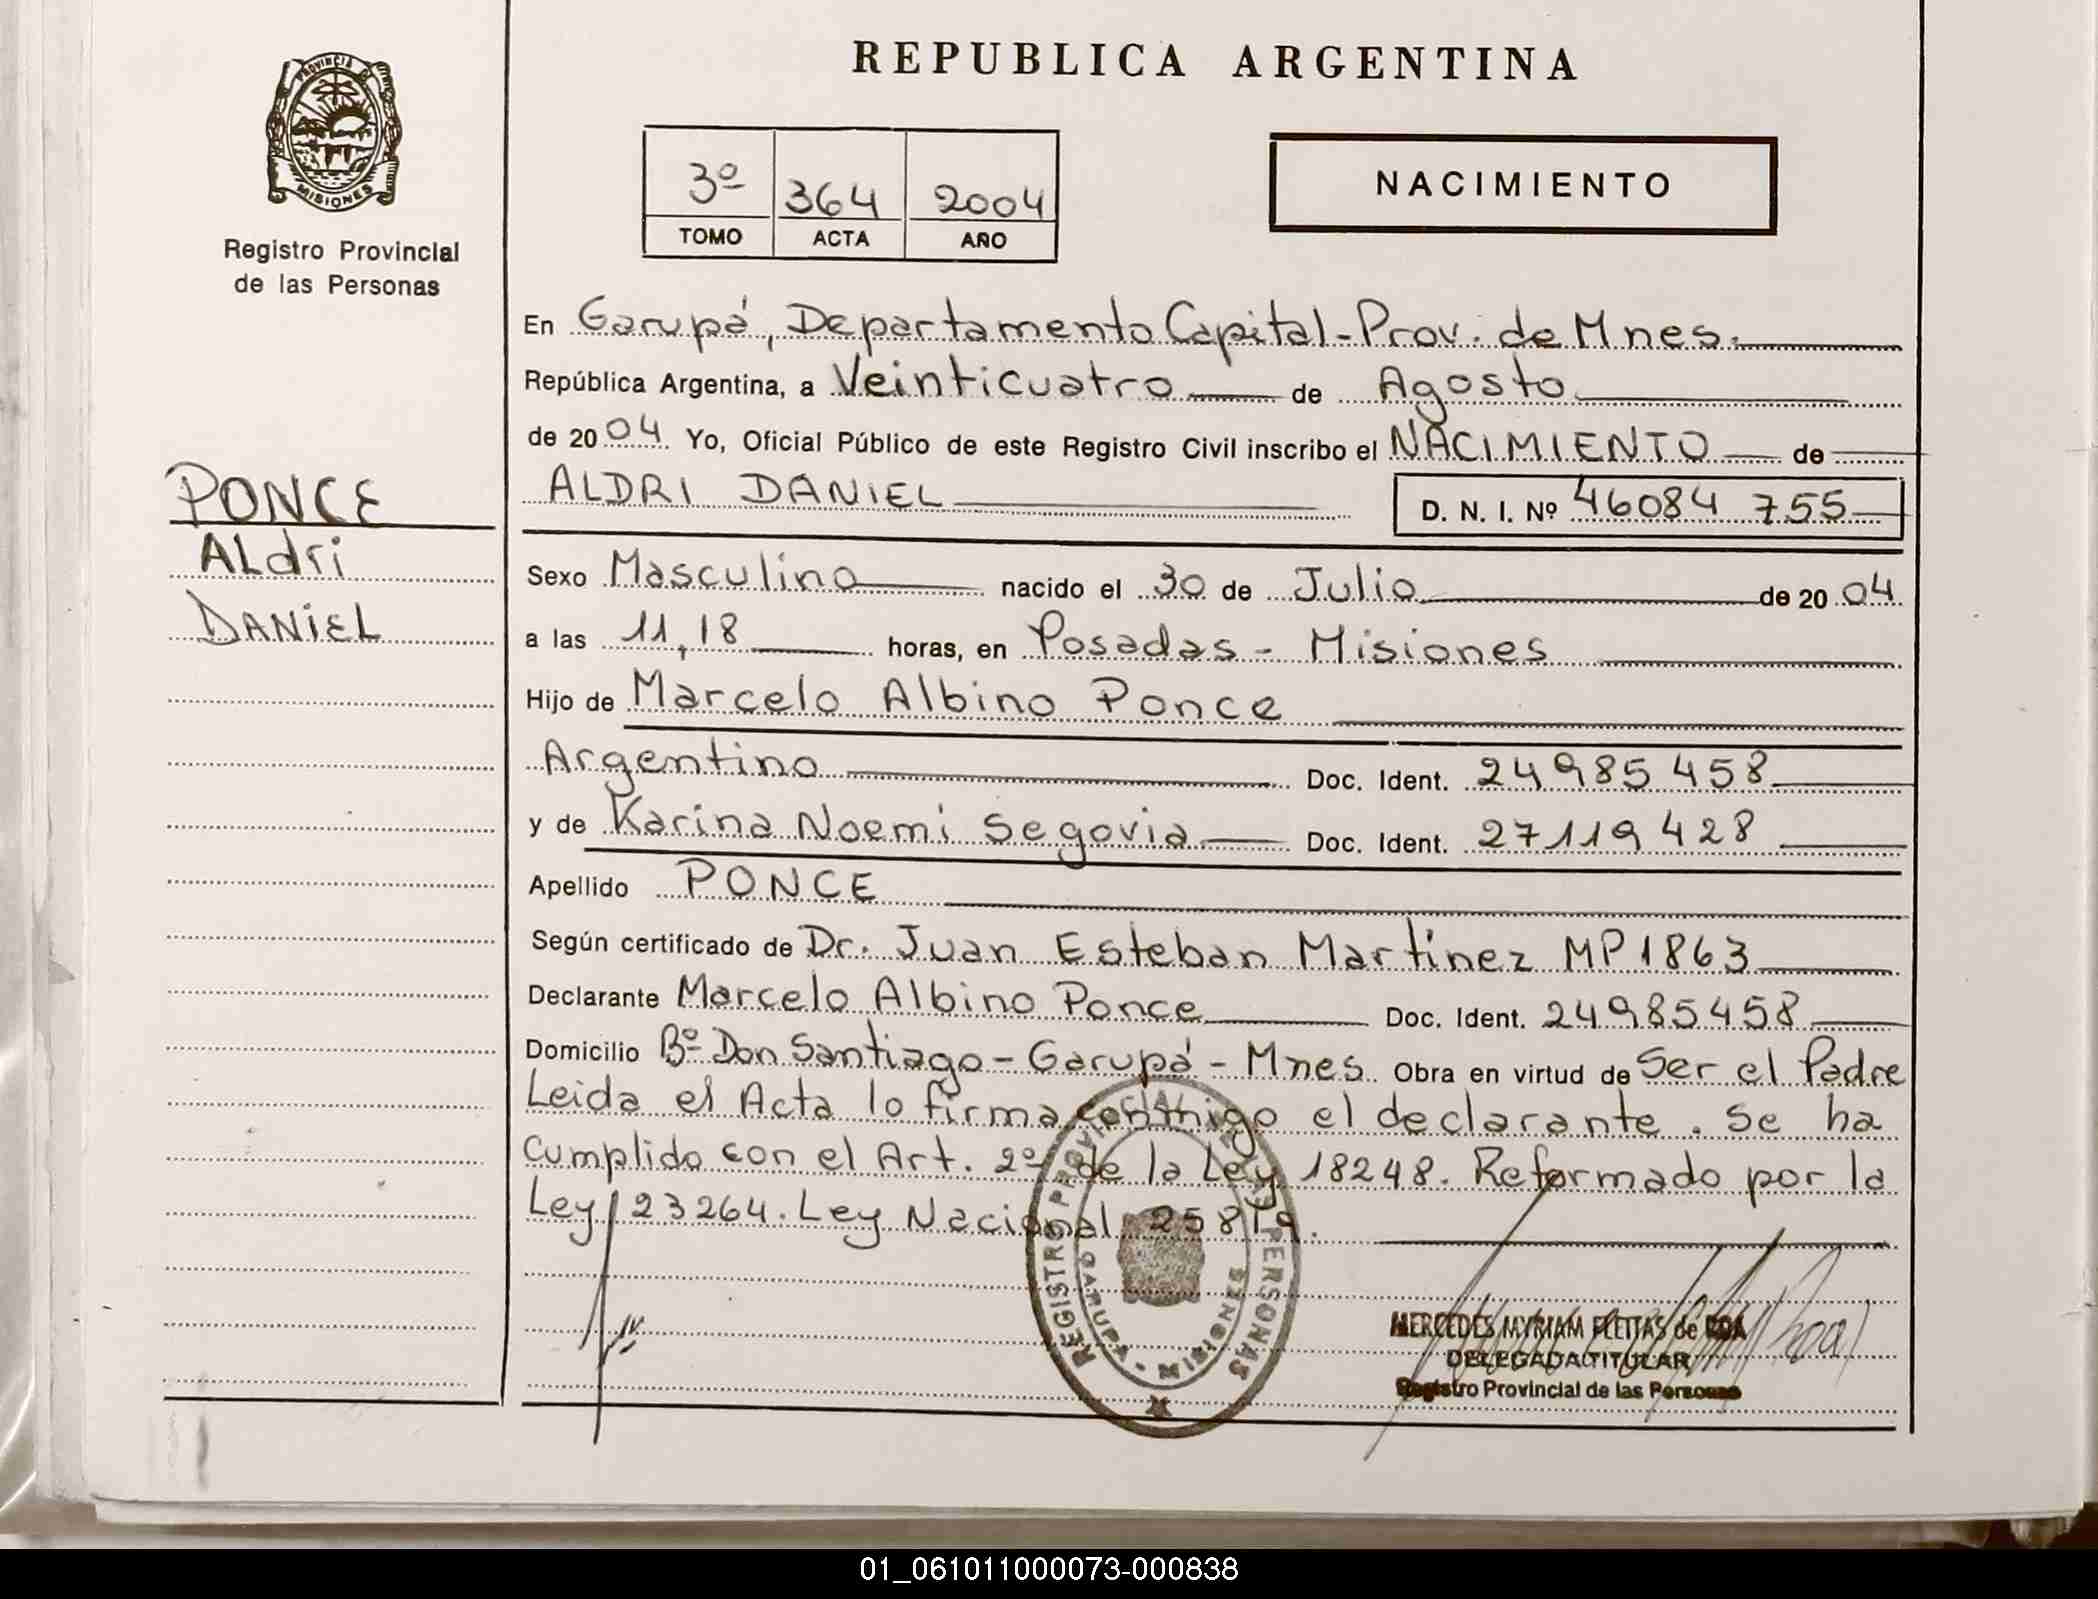 REPUBLICA ARGENTINA
PROVINCIA DE
MISIONES
Registro Provincial
de las Personas
3º 364 2004
TOMO ACTA AÑO
NACIMIENTO
En Garupá, Departamento Capital - Prov. de Mnes.
República Argentina, a Veinticuatro de Agosto
de 2004 Yo, Oficial Público de este Registro Civil inscribo el NACIMIENTO de
ALDRI DANIEL D. N. I. Nº 46084 755
PONCE
ALdri
DANIEL
Sexo Masculino nacido el 30 de Julio de 2004
a las 11,18 horas, en Posadas - Misiones
Hijo de Marcelo Albino Ponce
Argentino Doc. Ident. 24985458
y de Karina Noemi Segovia Doc. Ident. 27119428
Apellido PONCE
Según certificado de Dr. Juan Esteban Martinez MP1863
Declarante Marcelo Albino Ponce Doc. Ident. 24985458
Domicilio Bº Don Santiago - Garupá - Mnes Obra en virtud de Ser el Padre
Leida el Acta lo firma conmigo el declarante. Se ha
cumplido con el Art. 2º de la Ley 18248. Reformado por la
Ley 23264. Ley Nacional 25819.
REGISTRO PROVINCIAL DE LAS PERSONAS
GARUPA - MISIONES
MERCEDES MYRIAM FLEITAS de ROA
DELEGADA TITULAR
Registro Provincial de las Personas
01_061011000073-000838